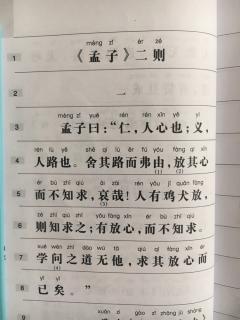 mèng zǐ èr zé
1 《孟子》二则
yī
2 一
mèng zǐ yuē rén rén xīn yě yì
3 孟子曰：“仁，人心也；义，
rén lù yě shě qí lù ér fú yóu fàng qí xīn
4 人路也。舍其路而弗由，放其心
(1) (2)
ér bù zhī qiú āi zāi rén yǒu jī quǎn fàng
5 而不知求，哀哉！人有鸡犬放，
zé zhī qiú zhī yǒu fàng xīn ér bù zhī qiú
6 则知求之；有放心，而不知求。
xué wèn zhī dào wú tā qiú qí fàng xīn ér
7 学问之道无他，求其放心而
(3) (4)
yǐ yǐ
8 已矣。”
9